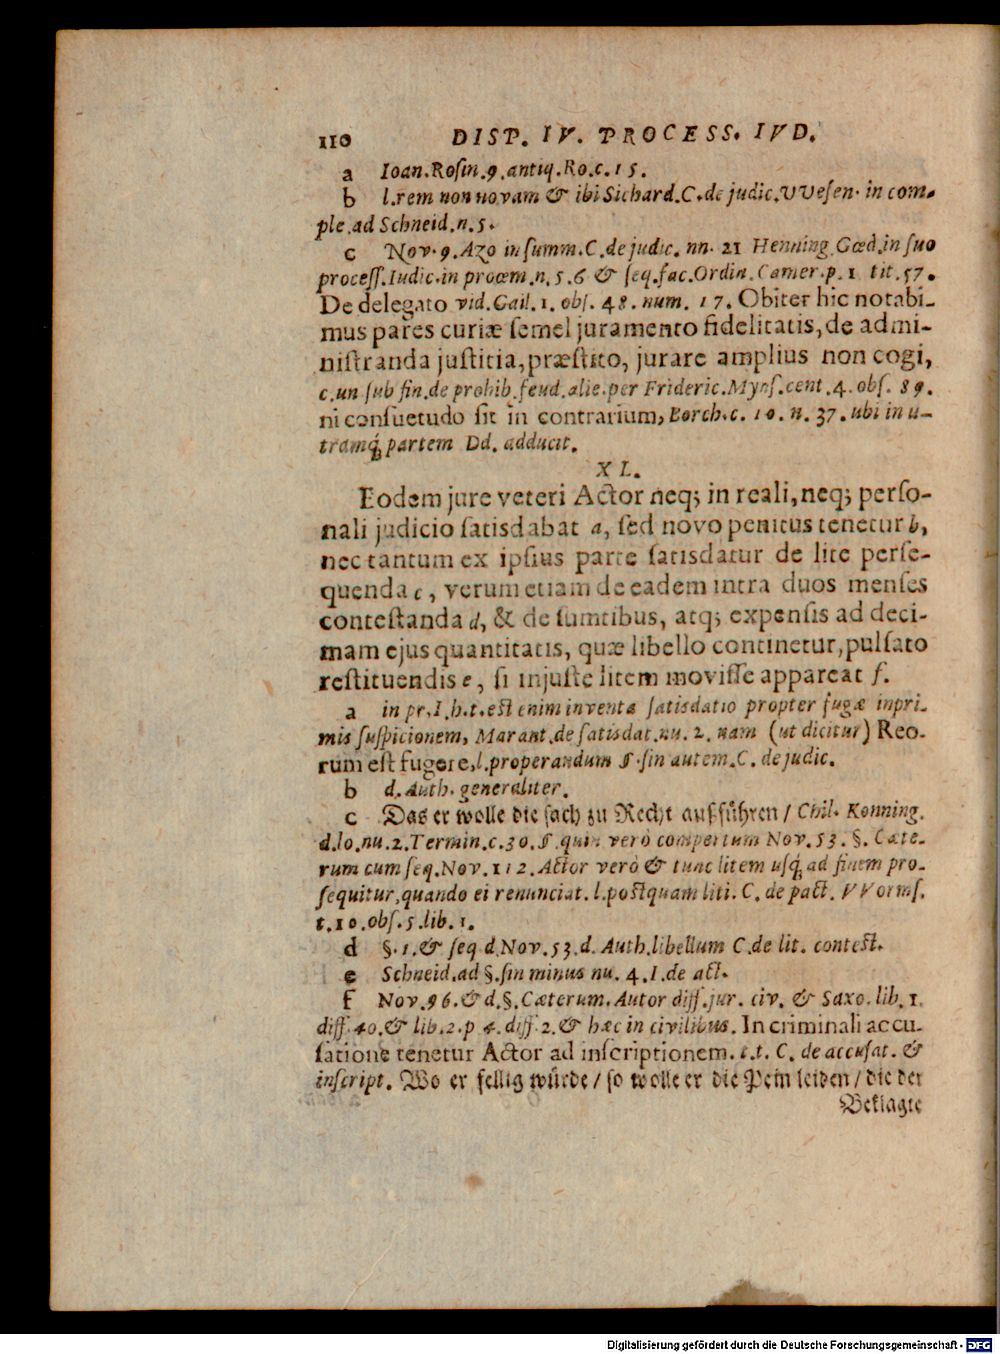 110 DISP. IV. PROCESS. IVD.
a Ioan.Rosin.9.antiq.Ro.c.15.
b l.rem non novam & ibi Sichard.C.de judic.VVesen. in com-
ple.ad Schneid.n.5.
c Nov.9.Azo in summ.C.de judic. nn. 21 Henning.Gœd.in suo
process.Iudic.in proœm.n.5.6 & seq.fac.Ordin.Camer.p.1 tit.57.
De delegato vid.Gail.1.obs.48.num.17. Obiter hic notabi-
mus pares curiæ semel juramento fidelitatis, de admi-
nistranda justitia, præstito, jurare amplius non cogi,
c.un sub fin.de prohib.feud.alie.per Frideric.Myns.cent.4.obs.89.
ni consuetudo sit in contrarium, Borch.c.10.n.37.ubi in u-
tramq; partem Dd. adducit.
XL.
Eodem jure veteri Actor neq; in reali, neq; perso-
nali judicio satisdabat a, sed novo penitus tenetur b,
nec tantum ex ipsius parte satisdatur de lite perse-
quenda c, verum etiam de eadem intra duos menses
contestanda d, & de sumtibus, atq; expensis ad deci-
mam ejus quantitatis, quæ libello continetur, pulsato
restituendis e, si injuste litem movisse appareat f.
a in pr.I.h.t.est enim inventa satisdatio propter fugæ inpri-
mis suspicionem, Marant.de satisdat.nu.2. nam (ut dicitur) Reo-
rum est fugere, l.properandum §.sin autem.C. de judic.
b d.Auth.generaliter.
c Das er wolle die sach zu Recht außführen / Chil. Konning.
d.lo.nu.2.Termin.c.30.§.quin verò compertum Nov.53.§.Cæte-
rum cum seq.Nov.112.Actor verò & tunc litem usq; ad finem pro-
sequitur,quando ei renunciat.l.postquam liti.C.de pact. VVorms.
t.10.obs.5.lib.1.
d §.1.& seq d.Nov.53.d.Auth.libellum C.de lit. contest.
e Schneid.ad §.sin minus nu. 4.I.de act.
f Nov.96.& d.§.Cæterum.Autor diff.jur. civ. & Saxo.lib.1.
diff.40.& lib.2.p 4.diff.2.& hæc in civilibus. In criminali accu-
satione tenetur Actor ad inscriptionem. t.t. C. de accusat. &
inscript. Wo er fellig würde / so wolle er die Pein leiden / die der
Beklagte
Digitalisierung gefördert durch die Deutsche Forschungsgemeinschaft - DFG